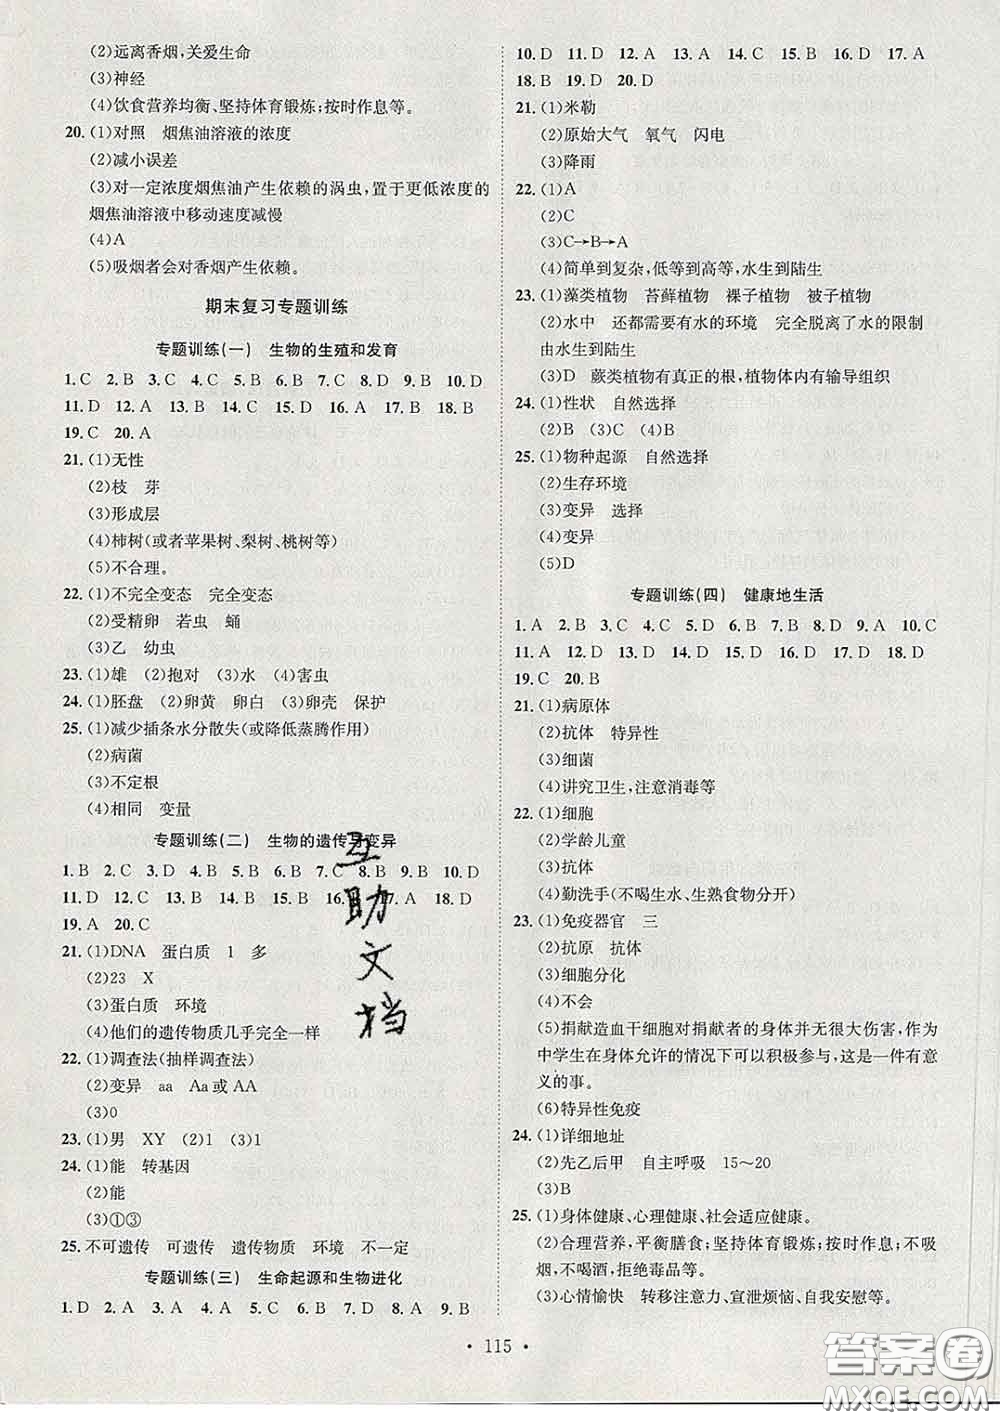 (2)远离香烟,关爱生命
(3)神经
(4)饮食营养均衡、坚持体育锻炼;按时作息等。
20. (1)对照 烟焦油溶液的浓度
(2)减小误差
(3)对一定浓度烟焦油产生依赖的涡虫,置于更低浓度的
烟焦油溶液中移动速度减慢
(4)A
(5)吸烟者会对香烟产生依赖。
期末复习专题训练
专题训练(一) 生物的生殖和发育
1. C 2. B 3. C 4. C 5. B 6. B 7. C 8. D 9. B 10. D
11. D 12. A 13. B 14. C 15. D 16. A 17. B 18. B
19. C 20. A
21. (1)无性
(2)枝 芽
(3)形成层
(4)柿树(或者苹果树、梨树、桃树等)
(5)不合理。
22. (1)不完全变态 完全变态
(2)受精卵 若虫 蛹
(3)乙 幼虫
23. (1)雄 (2)抱对 (3)水 (4)害虫
24. (1)胚盘 (2)卵黄 卵白 (3)卵壳 保护
25. (1)减少插条水分散失(或降低蒸腾作用)
(2)病菌
(3)不定根
(4)相同 变量
专题训练(二) 生物的遗传与变异
1. B 2. C 3. D 4. B 5. B 6. D 7. C 8. B 9. B 10. D
11. D 12. D 13. A 14. B 15. B 16. C 17. A 18. D
19. A 20. C
21. (1)DNA 蛋白质 1 多
(2)23 X
(3)蛋白质 环境
(4)他们的遗传物质几乎完全一样
22. (1)调查法(抽样调查法)
(2)变异 aa Aa或AA
(3)0
23. (1)男 XY (2)1 (3)1
24. (1)能 转基因
(2)能
(3)①③
25. 不可遗传 可遗传 遗传物质 环境 不一定
专题训练(三) 生命起源和生物进化
1. D 2. A 3. A 4. A 5. C 6. B 7. D 8. A 9. B
10. D 11. D 12. A 13. A 14. C 15. B 16. D 17. A
18. B 19. D 20. D
21. (1)米勒
(2)原始大气 氧气 闪电
(3)降雨
22. (1)A
(2)C
(3)C→B→A
(4)简单到复杂,低等到高等,水生到陆生
23. (1)藻类植物 苔藓植物 裸子植物 被子植物
(2)水中 还都需要有水的环境 完全脱离了水的限制
由水生到陆生
(3)D 蕨类植物有真正的根,植物体内有输导组织
24. (1)性状 自然选择
(2)B (3)C (4)B
25. (1)物种起源 自然选择
(2)生存环境
(3)变异 选择
(4)变异
(5)D
专题训练(四) 健康地生活
1. A 2. B 3. C 4. C 5. D 6. B 7. B 8. D 9. A 10. C
11. A 12. D 13. D 14. D 15. D 16. A 17. D 18. D
19. C 20. B
21. (1)病原体
(2)抗体 特异性
(3)细菌
(4)讲究卫生,注意消毒等
22. (1)细胞
(2)学龄儿童
(3)抗体
(4)勤洗手(不喝生水、生熟食物分开)
23. (1)免疫器官 三
(2)抗原 抗体
(3)细胞分化
(4)不会
(5)捐献造血干细胞对捐献者的身体并无很大伤害,作为
中学生在身体允许的情况下可以积极参与,这是一件有意
义的事。
(6)特异性免疫
24. (1)详细地址
(2)先乙后甲 自主呼吸 15～20
(3)B
25. (1)身体健康、心理健康、社会适应健康。
(2)合理营养,平衡膳食;坚持体育锻炼;按时作息;不吸
烟,不喝酒,拒绝毒品等。
(3)心情愉快 转移注意力、宣泄烦恼、自我安慰等。
互
助
文
档
• 115 •
答案圈
MXQE.COM